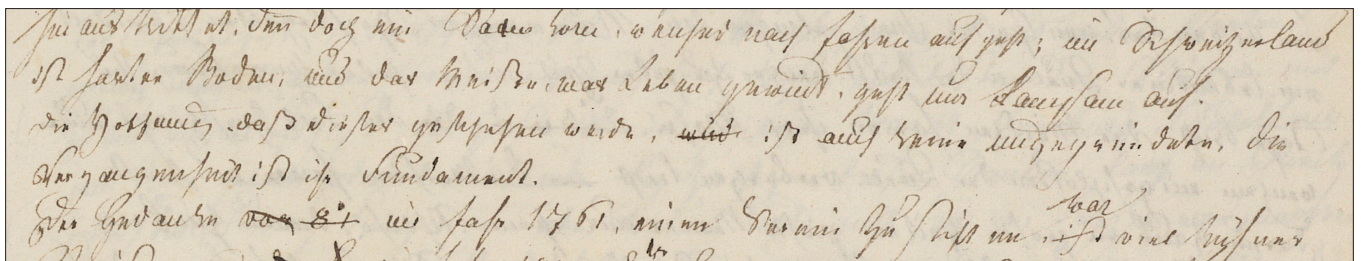 hinausstreckt. den doch ein Samenkorn, wenses nach Jahren aufgeht; im Schweizerland
ist harter Boden, und das Meiste, was Leben gewint, geht nur langsam auf.
Die Hoffnung, daß dieses geschehen werde, und ist auch keine ungegründete. Die
Vergangenheit ist ihr Fundament.
Der Gedanke vor 81 im Jahr 1761. einen Verein zu stiften ist war viel kühner